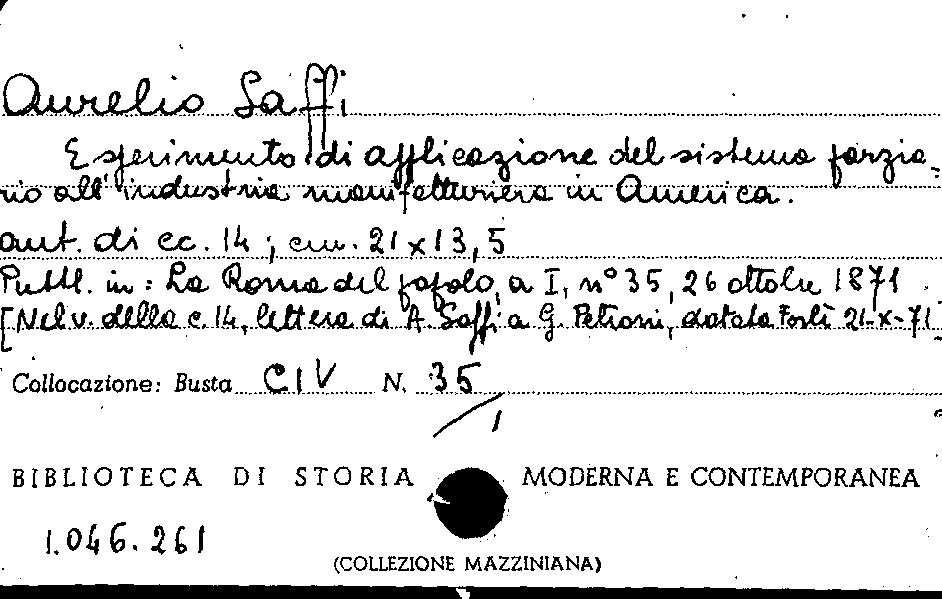 Aurelio Saffi
Esperimento di applicazione del sistema parzia-
rio all'industria manifatturiera in America.
aut. di cc. 14; cm. 21x13,5
Pubbl. in: La Roma del popolo, a I, n° 35, 26 ottobre 1871.
[Nel v. della c. 14, lettera di A. Saffi a G. Petroni, datata Forlì 21-X-71]
Collocazione: Busta CIV N. 35/1
BIBLIOTECA DI STORIA MODERNA E CONTEMPORANEA
1.046.261
(COLLEZIONE MAZZINIANA)